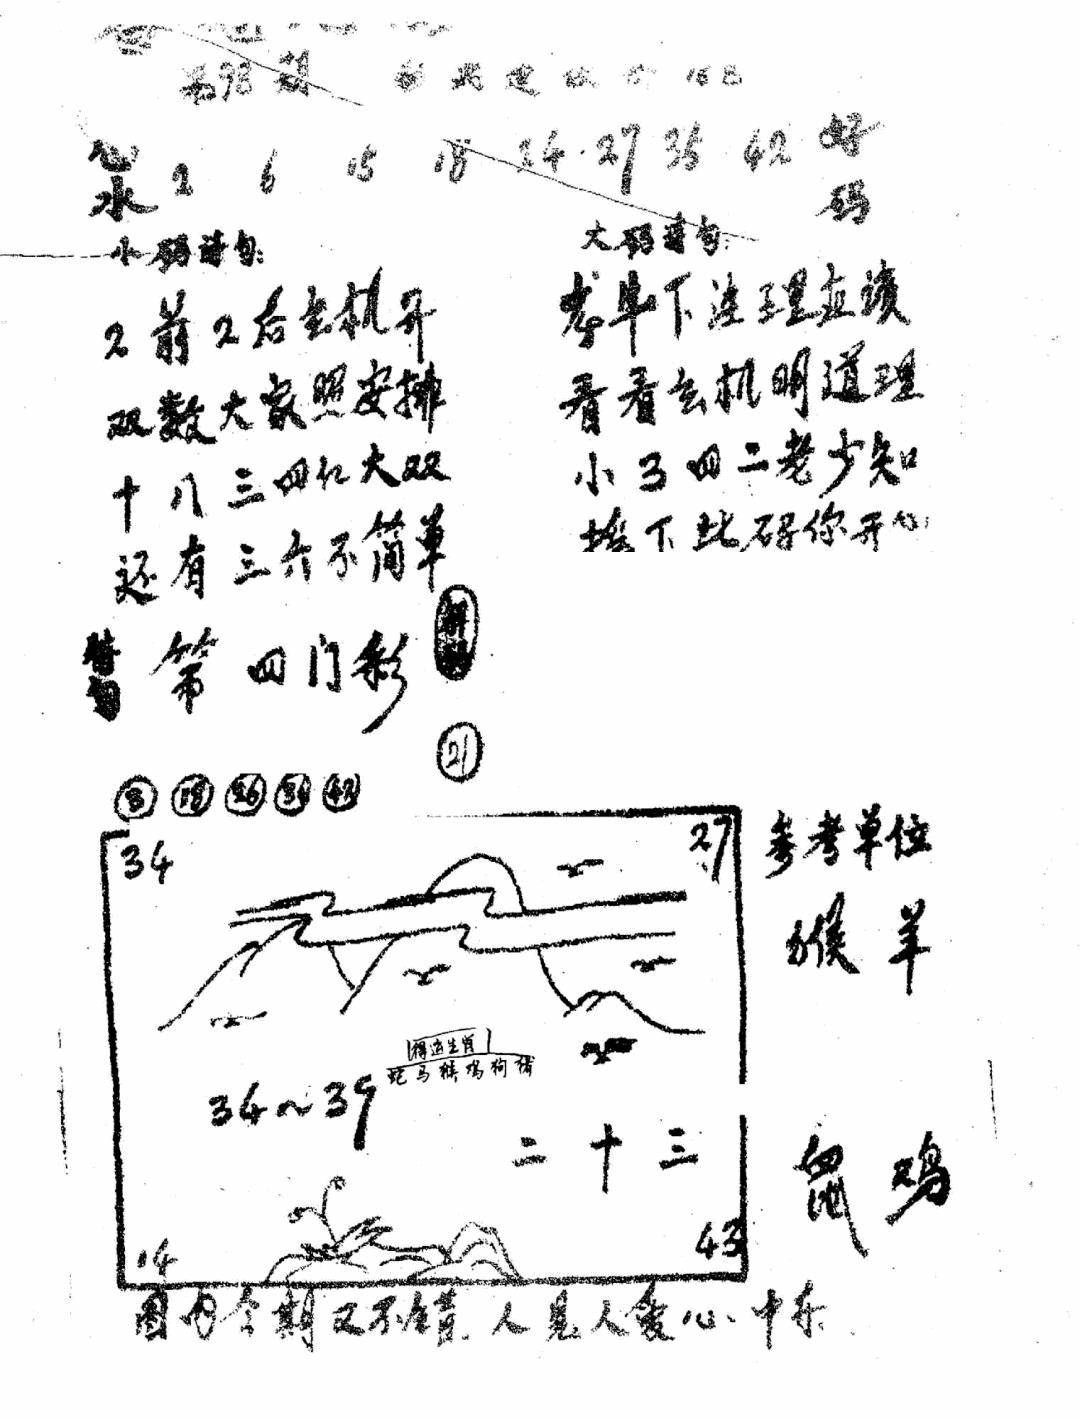 第93期
心水 2 6 15 18 24·27 35 42 好码
小码诗句:
2前2后玄机开
双数大家照安排
十八三四红大双
还有三六不简单
大码诗句:
看看玄机明道理
小3四二老少知
下此码你开心
第四门彩
21
8 18 26 36 42
34 27
参考单位
猴羊
得道生肖
蛇马猴鸡狗猪
34~39
二十三
鼠鸡
14 43
图内今期又不错.人见人爱心、中乐.